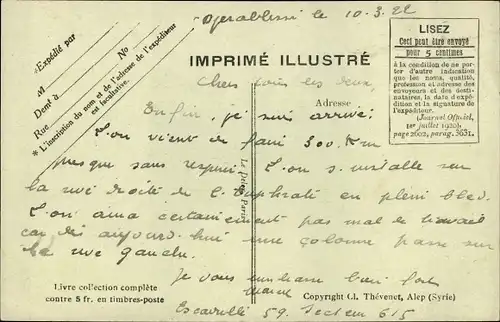 Djerabliss le 10.3.22
LISEZ
Ceci peut être envoyé
pour 5 centimes
à la condition de ne por-
ter d'autre indication
que les nom, qualité,
profession et adresse des
envoyeurs et des desti-
nataires, la date d'expé-
dition et la signature de
l'expéditeur.
(Journal Officiel,
1er juillet 1920)
page 2602, parag. 3631.
Expédié par
M
No
Demt à
Rue
* L'inscription du nom et de l'adresse de l'expéditeur
est facultative.
IMPRIMÉ ILLUSTRÉ
Adresse
Chers tous les deux,
Enfin, je suis arrivé.
L'on vient de faire 300 Km
presque sans respirer. L'on s'installe sur
la rive droite de l'Euphrate en plein bled.
L'on aura certainement pas mal de travail
car dès aujourd'hui une colonne passe sur
la rive gauche.
Je vous embrasse bien fort
59 Secteur 615
Le Deley, Paris
Livre collection complète
contre 5 fr. en timbres-poste
Copyright Cl. Thévenet, Alep (Syrie)